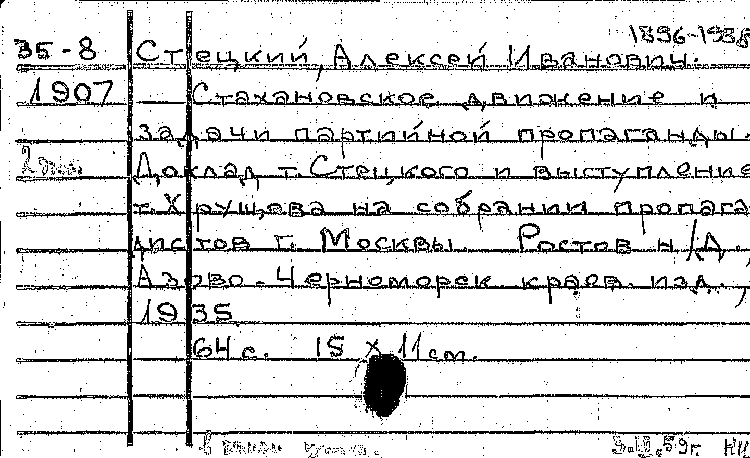 1896-1938
35-8 Стецкий, Алексей Иванович.
1907 Стахановское движение и
задачи партийной пропаганды.
2 экз. Доклад т. Стецкого и выступление
т. Хрущева на собрании пропага
дистов г. Москвы. Ростов н/Д.,
Азово-Черноморск. краев. изд.,
1935
64 с. 15 × 11 см.